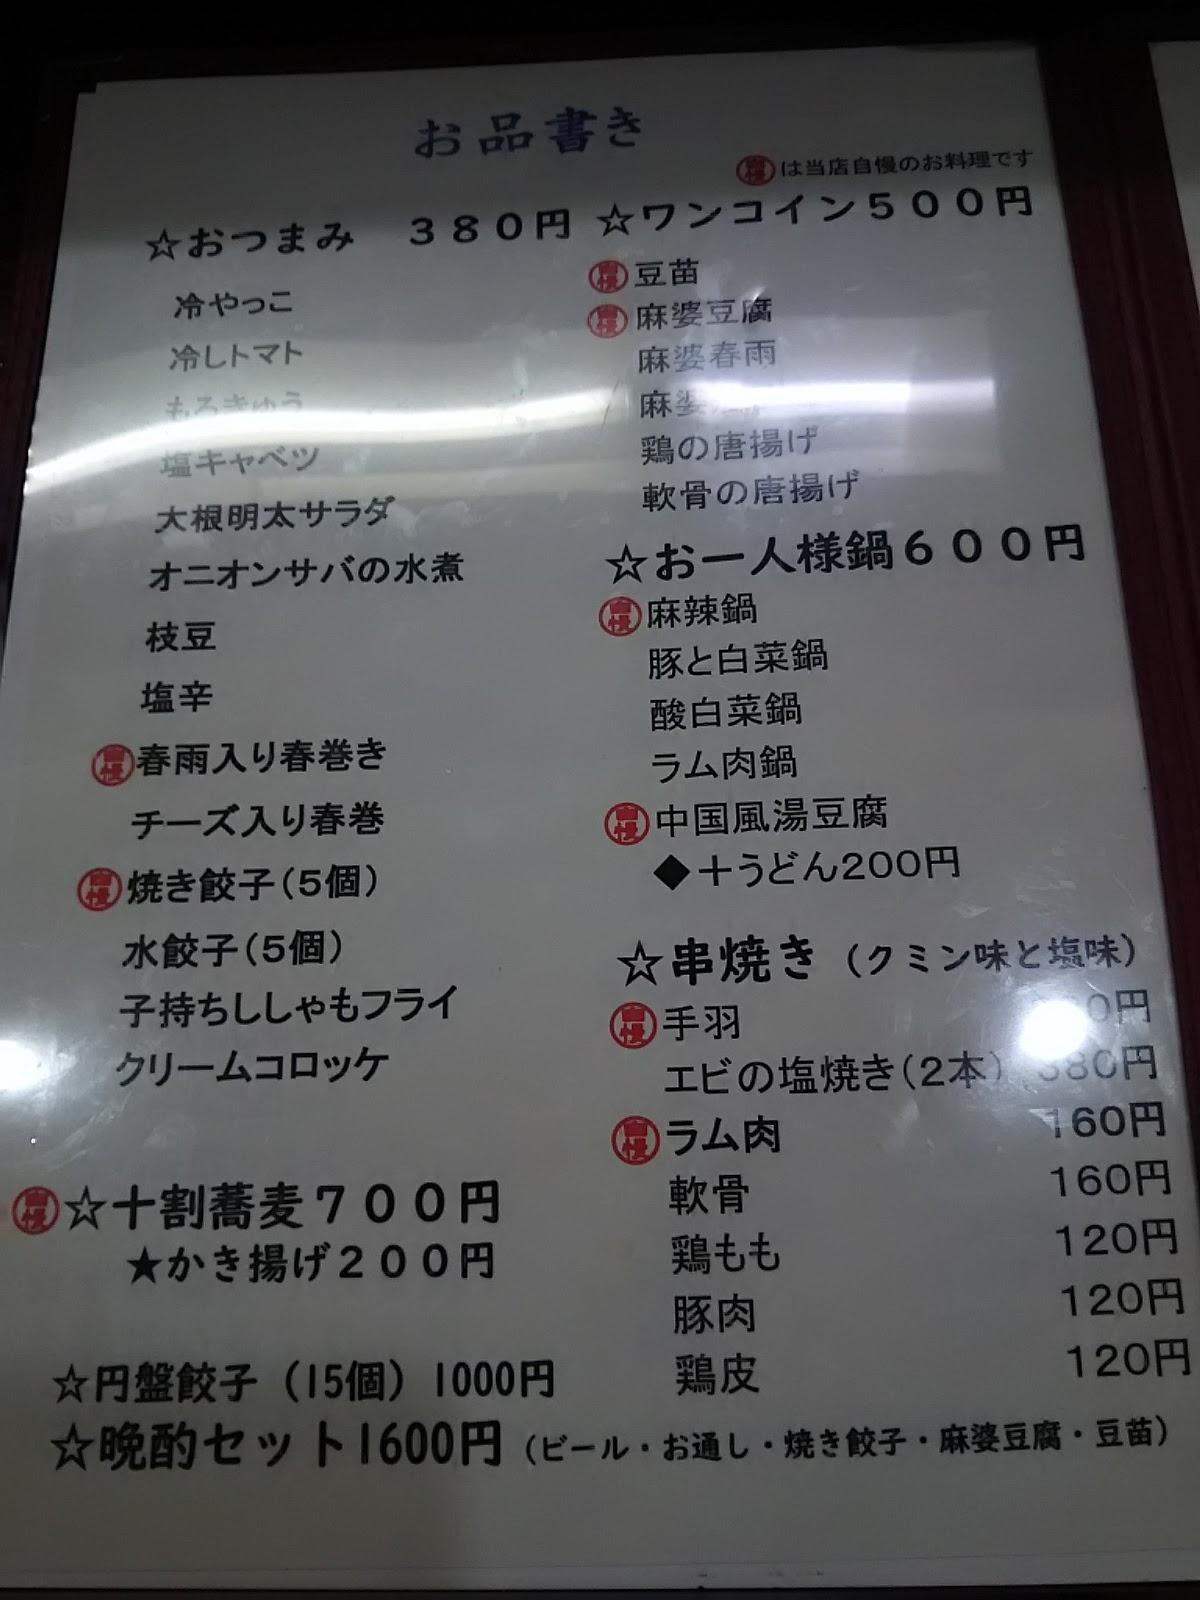 お品書き
自慢は当店自慢のお料理です
☆おつまみ　３８０円
冷やっこ
冷しトマト
もろきゅう
塩キャベツ
大根明太サラダ
オニオンサバの水煮
枝豆
塩辛
自慢春雨入り春巻き
チーズ入り春巻
自慢焼き餃子（5個）
水餃子（5個）
子持ちししゃもフライ
クリームコロッケ
自慢☆十割蕎麦７００円
★かき揚げ２００円
☆円盤餃子（15個）1000円
☆晩酌セット1600円（ビール・お通し・焼き餃子・麻婆豆腐・豆苗）
☆ワンコイン５００円
自慢豆苗
自慢麻婆豆腐
麻婆春雨
麻婆
鶏の唐揚げ
軟骨の唐揚げ
☆お一人様鍋６００円
自慢麻辣鍋
豚と白菜鍋
酸白菜鍋
ラム肉鍋
自慢中国風湯豆腐
◆＋うどん200円
☆串焼き（クミン味と塩味）
自慢手羽
エビの塩焼き（2本）　380円
自慢ラム肉　160円
軟骨　160円
鶏もも　120円
豚肉　120円
鶏皮　120円